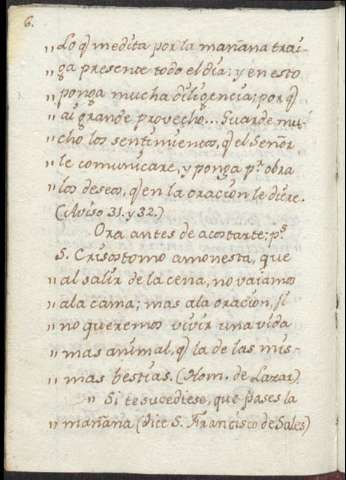 6.
„ Lo q̃ medita por la mañana trai-
„ ga presente todo el dia; y en esto
„ ponga mucha diligencia; por q̃
„ ai grande provecho... Guarde mu-
„ cho los sentimientos, q̃ el Señor
„ le comunicare, y ponga pʳ obra
„ los deseos, q̃ en la oracion le diere.
(Aviso 31. y 32.)
Ora antes de acostarte; pˢ
S. Crisostomo amonesta, que
„ al salir de la cena, no vajamos
„ a la cama; mas a la oracion, si
„ no queremos vivir una vida
„ mas animal, q̃ la de las mis-
„ mas bestias. (Hom. de Lazar.)
„ Si te sucediese, que pases la
„ mañana (dice S. Francisco de Sales)